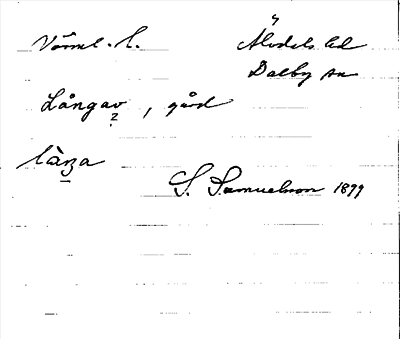 Värml. l.
Älvdals hd
Dalby sn
Långav, gård
?
làŋa
S. Samuelsson 1899